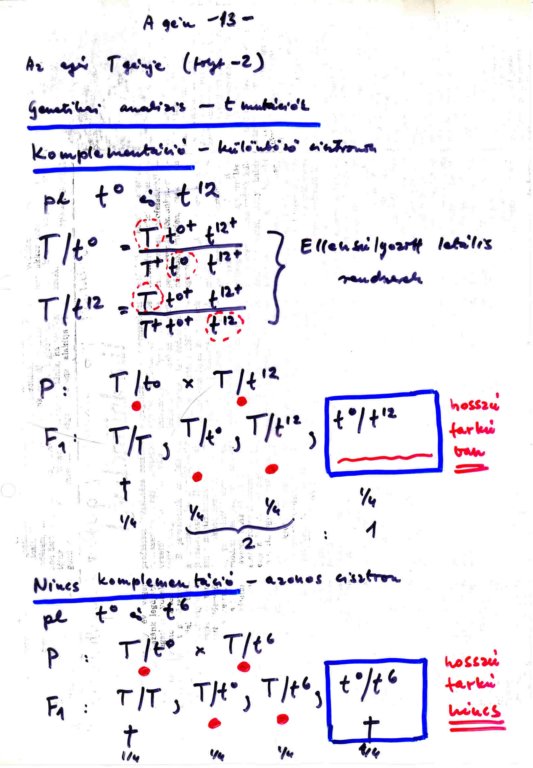 A gén -13-
Az egér T génje (folyt-2)
Genetikai analízis - t mutációk
Komplementáció - különböző cisztronok
pl t⁰ és t¹²
T/t⁰ = T t⁰⁺ t¹²⁺ / T⁺ t⁰ t¹²⁺
T/t¹² = T t⁰⁺ t¹²⁺ / T⁺ t⁰⁺ t¹²
Ellensúlyozott letális
rendszerek
P: T/t⁰ × T/t¹²
F₁: T/T, T/t⁰, T/t¹², t⁰/t¹²
hosszú
farkú
van
† 1/4 1/4 1/4 1/4
2 : 1
Nincs komplementáció - azonos cisztron
pl t⁰ és t⁶
P: T/t⁰ × T/t⁶
F₁: T/T, T/t⁰, T/t⁶, t⁰/t⁶
hosszú
farkú
nincs
† †
1/4 1/4 1/4 1/4